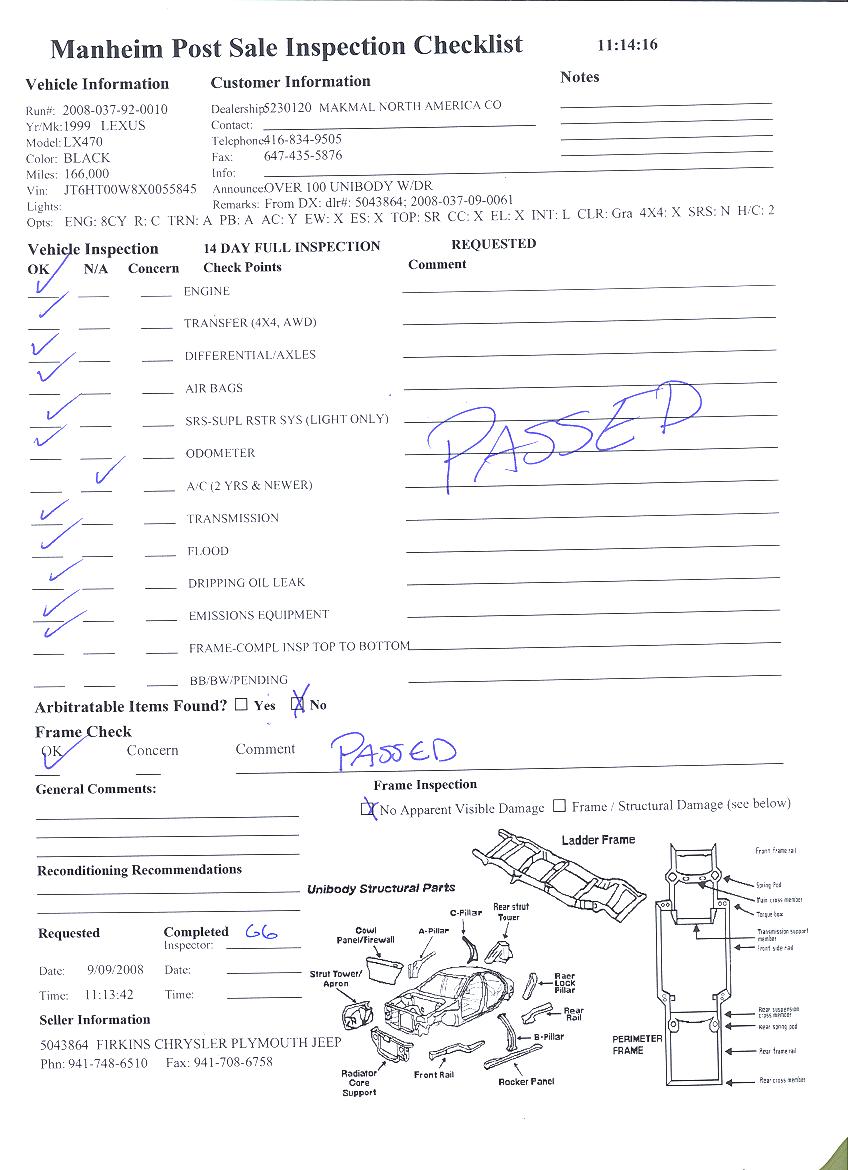 Manheim Post Sale Inspection Checklist 11:14:16
Vehicle Information Customer Information Notes
Run#: 2008-037-92-0010 Dealership5230120 MAKMAL NORTH AMERICA CO
Yr/Mk:1999 LEXUS Contact:
Model:LX470 Telephone416-834-9505
Color: BLACK Fax: 647-435-5876
Miles: 166,000 Info:
Vin: JT6HT00W8X0055845 AnnounceOVER 100 UNIBODY W/DR
Lights: Remarks: From DX: dlr#: 5043864; 2008-037-09-0061
Opts: ENG: 8CY R: C TRN: A PB: A AC: Y EW: X ES: X TOP: SR CC: X EL: X INT: L CLR: Gra 4X4: X SRS: N H/C: 2
Vehicle Inspection 14 DAY FULL INSPECTION REQUESTED
OK N/A Concern Check Points Comment
ENGINE
TRANSFER (4X4, AWD)
DIFFERENTIAL/AXLES
AIR BAGS
SRS-SUPL RSTR SYS (LIGHT ONLY)
PASSED
ODOMETER
A/C (2 YRS & NEWER)
TRANSMISSION
FLOOD
DRIPPING OIL LEAK
EMISSIONS EQUIPMENT
FRAME-COMPL INSP TOP TO BOTTOM
BB/BW/PENDING
Arbitratable Items Found? Yes No
Frame Check
OK Concern Comment PASSED
General Comments: Frame Inspection
No Apparent Visible Damage Frame / Structural Damage (see below)
Reconditioning Recommendations
Requested Completed GG
Inspector:
Date: 9/09/2008 Date:
Time: 11:13:42 Time:
Seller Information
5043864 FIRKINS CHRYSLER PLYMOUTH JEEP
Phn: 941-748-6510 Fax: 941-708-6758
Unibody Structural Parts
Cowl Panel/Firewall
A-Pillar
C-Pillar
Rear strut Tower
Strut Tower/ Apron
Raer Lock Pillar
Rear Rail
B-Pillar
Radiator Core Support
Front Rail
Rocker Panel
Ladder Frame
PERIMETER FRAME
Front frame rail
Spring Pod
Main cross member
Torque box
Transmission support member
Front side rail
Rear suspension cross member
Rear spring pod
Rear frame rail
Rear cross member